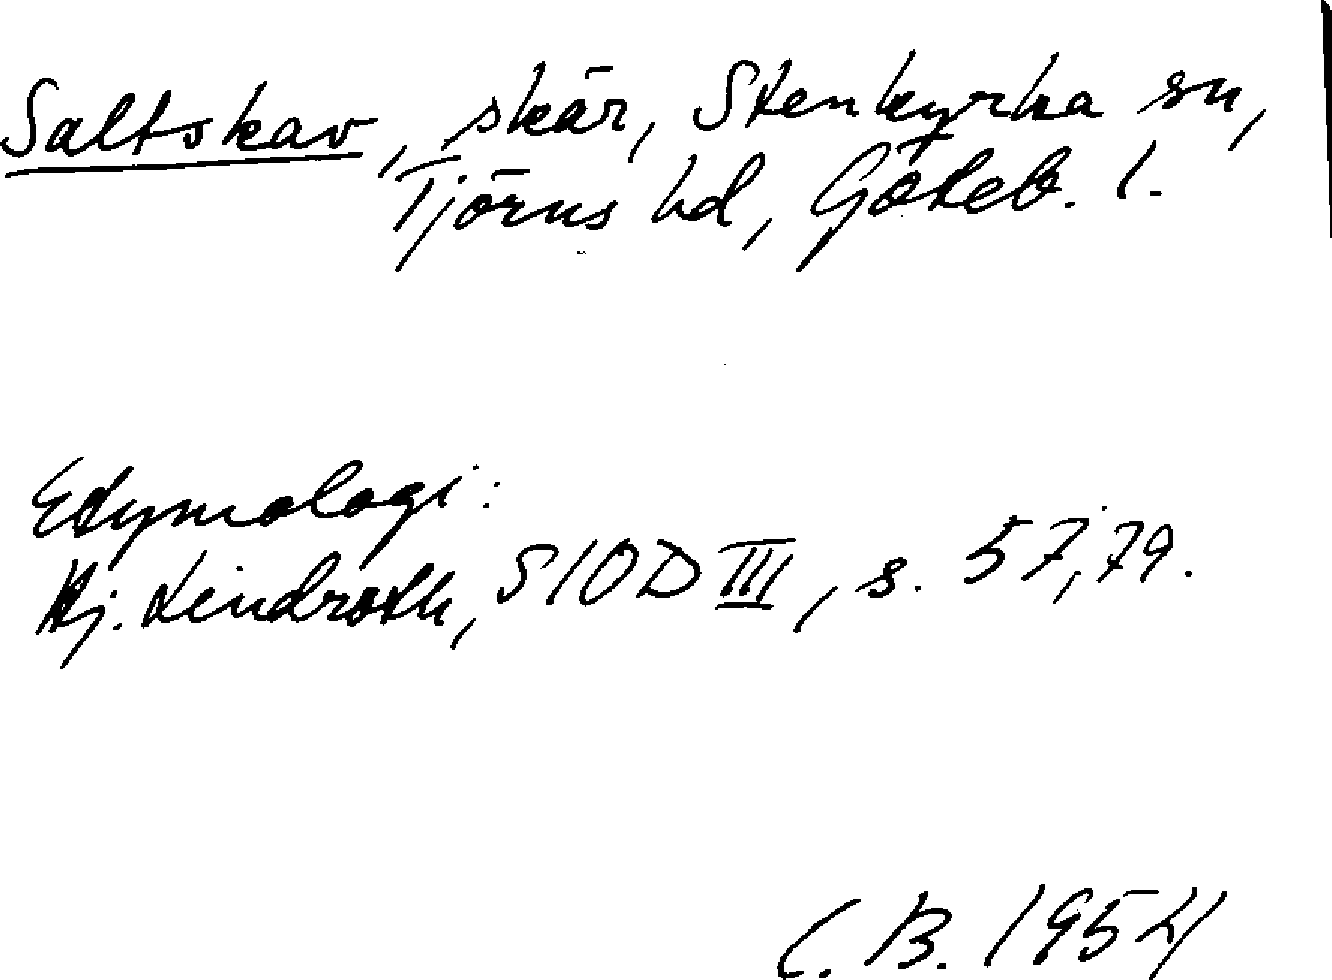 Saltskav, skär, Stenkyrka sn,
Tjörns hd, Göteb. l.
Etymologi:
Hj. Lindroth, SIOD III, s. 57, 79.
C. B. 1954